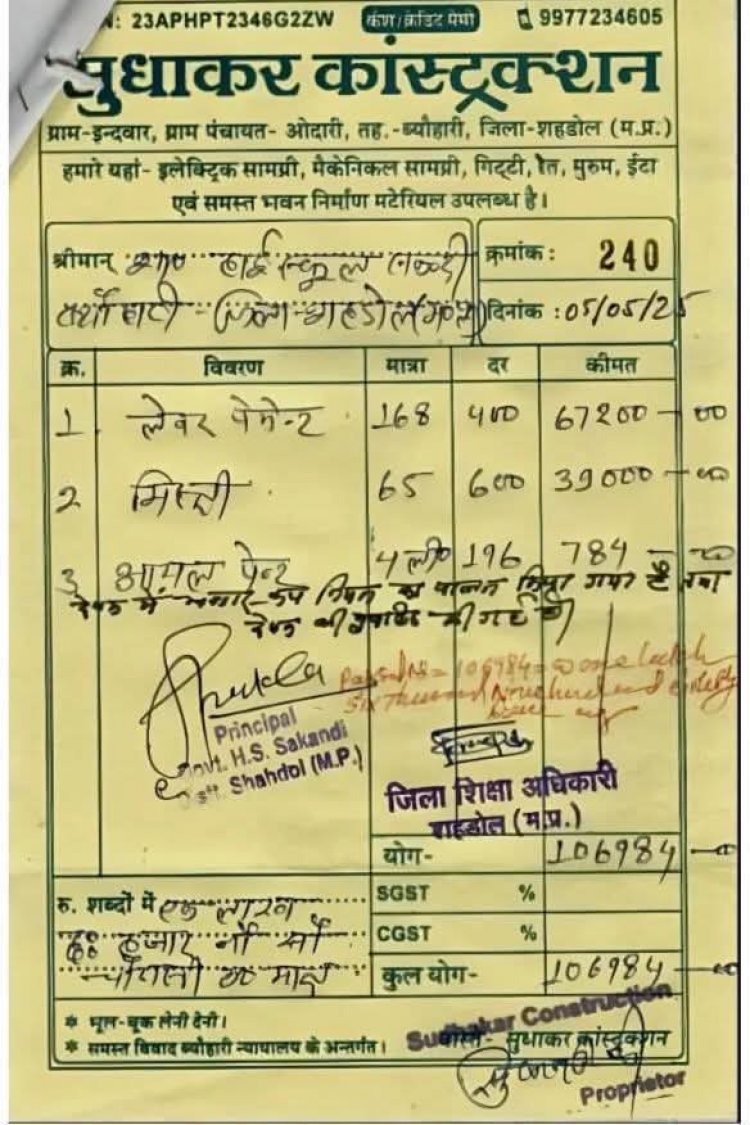 N: 23APHPT2346G2ZW कैश/क्रेडिट मेमो 9977234605
सुधाकर कांस्ट्रक्शन
ग्राम-इन्दवार, ग्राम पंचायत- ओदारी, तह.-ब्यौहारी, जिला-शहडोल (म.प्र.)
हमारे यहां- इलेक्ट्रिक सामग्री, मैकेनिकल सामग्री, गिट्टी, रेत, मुरुम, ईटा
एवं समस्त भवन निर्माण मटेरियल उपलब्ध है।
श्रीमान् हाई स्कूल क्रमांक : 240
जिला-शहडोल (म०प्र०) दिनांक : 05/05/25
क्र. विवरण मात्रा दर कीमत
1 लेबर पेमेन्ट 168 400 67200-00
2 मिस्त्री 65 600 39000-00
3 आयल पेन्ट 4 ली० 196 784-00
का पालन किया गया है तथा
की गई थी
Passed Rs = 106984=00 one lakh
Six Thousand Nine hundred eighty
Principal
Govt. H.S. Sakandi
Distt. Shahdol (M.P.)
जिला शिक्षा अधिकारी
शहडोल (म.प्र.)
योग- 106984-00
रु. शब्दों में एक लाख SGST %
छः हजार नौ सौ CGST %
चौरासी रू मात्र कुल योग- 106984-00
* भूल-चूक लेनी देनी।
* समस्त विवाद ब्यौहारी न्यायालय के अन्तर्गत।
वास्ते- सुधाकर कांस्ट्रक्शन
Sudhakar Construction
Proprietor